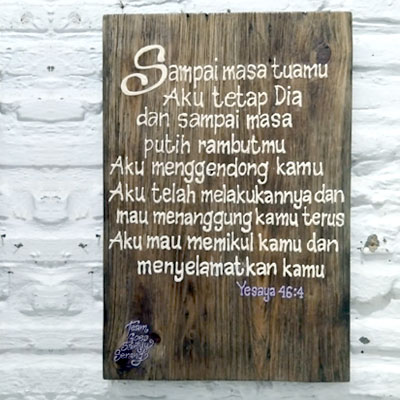 Sampai masa tuamu
Aku tetap Dia
dan sampai masa
putih rambutmu
Aku menggendong kamu
Aku telah melakukannya dan
mau menanggung kamu terus
Aku mau memikul kamu dan
menyelamatkan kamu
Yesaya 46:4
Team